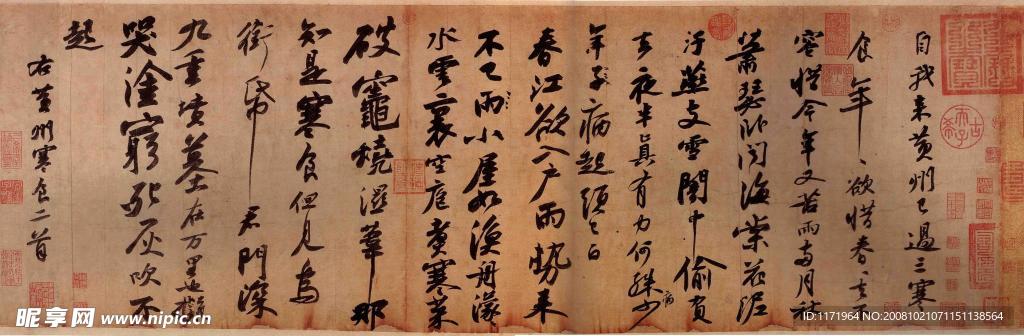 自我来黄州已過三寒
食年〻欲惜春〻去不
容惜今年又苦雨兩月秋
蕭瑟卧聞海棠花泥
汙燕支雪闇中偷負
去夜半真有力何殊少
年子病起頭已白
春江欲入户雨勢来
不已雨小屋如漁舟濛〻
水雲裏空庖煮寒菜
破竈燒濕葦那
知是寒食但見烏
銜帋君門深
九重墳墓在万里也擬
哭塗窮死灰吹不
起
右黄州寒食二首
病
昵享网 www.nipic.cn
ID:1171964 NO:20081021071151138564